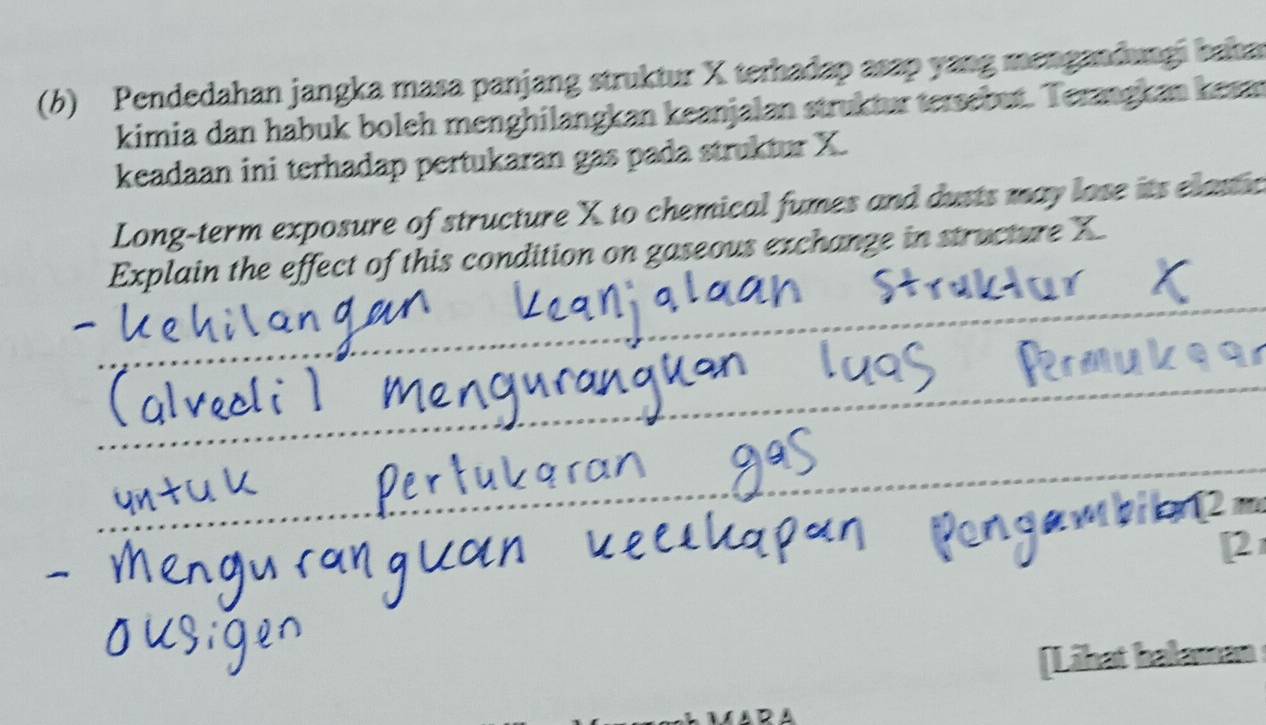 (b) Pendedahan jangka masa panjang struktur X terhadap asap yang mengandungi
kimia dan habuk boleh menghilangkan keanjalan struktur tersebut. Terangkan
keadaan ini terhadap pertukaran gas pada struktur X.
Long-term exposure of structure X to chemical fumes and dusts may lose its
Explain the effect of this condition on gaseous exchange in structure X.
- kehilangan keanjalaan struktur X
(alveoli) mengurangkan luas Permukaan
untuk pertukaran gas
- mengurangkan kecekapan
[2
[2
oksigen
[Lihat halaman
MARA